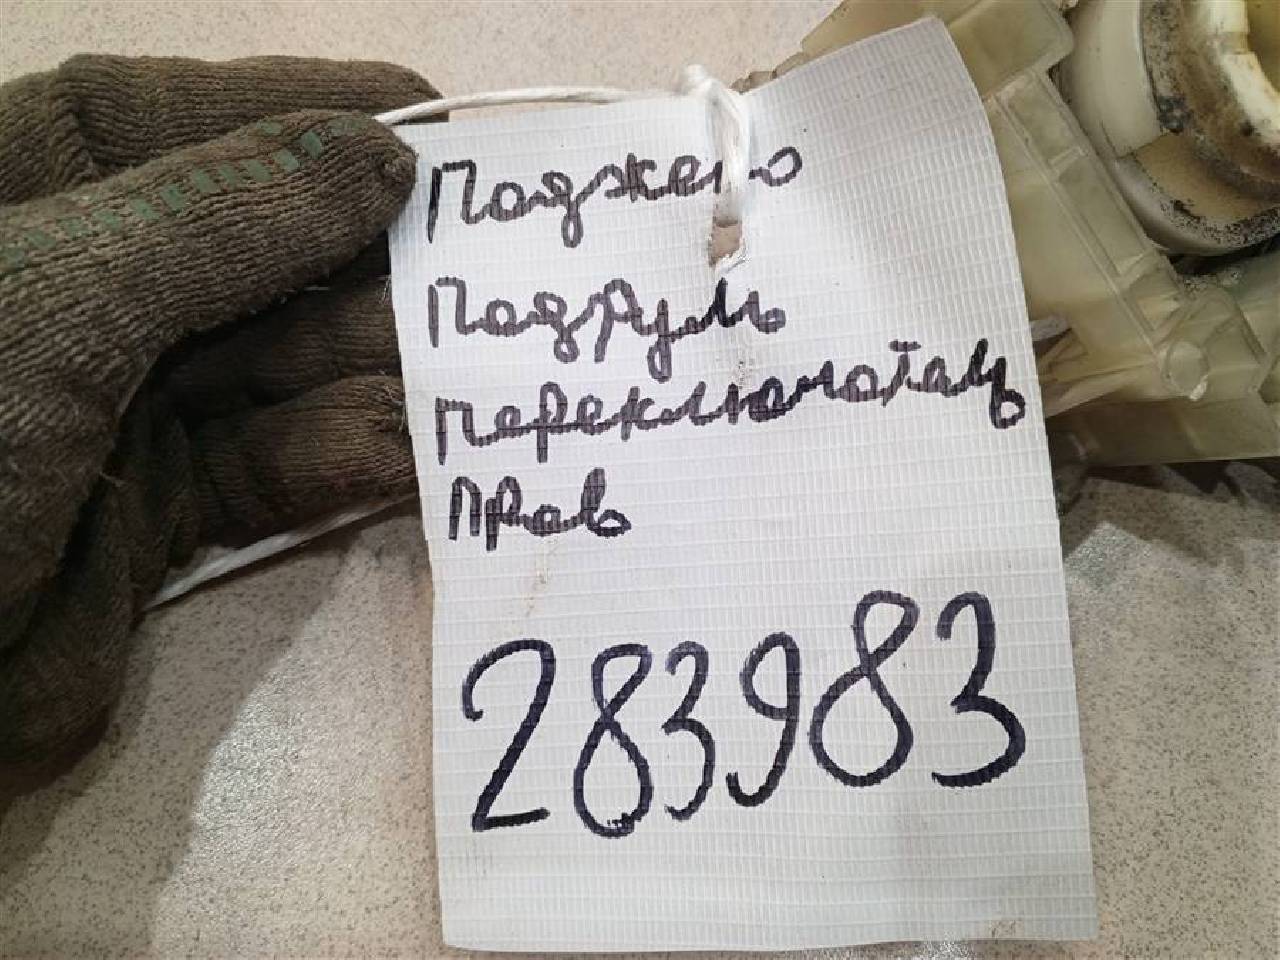 Поджено
Подруль
переключатель
прав
283983